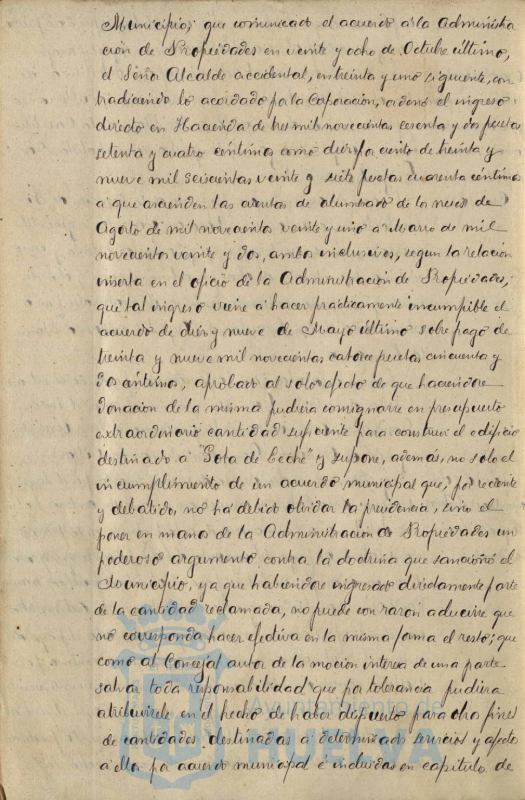 Municipio; que comunicado el acuerdo a la Administra
ción de Propiedades en veinte y ocho de Octubre último,
el Señor Alcalde accidental, en treinta y uno siguiente, con
tradiciendo lo acordado por la Corporación, ordenó el ingreso
directo en Hacienda de tres mil novecientas sesenta y dos pesetas
setenta y cuatro céntimos como diez por ciento de treinta y
nueve mil seiscientas veinte y siete pesetas cuarenta céntimos
a que ascienden las cuentas de alumbrado de los meses de
Agosto de mil novecientos veinte y uno a Marzo de mil
novecientos veinte y dos, ambos inclusives, segun la relación
inserta en el oficio de la Administración de Propiedades;
que tal ingreso viene a hacer prácticamente incumplible el
acuerdo de diez y nueve de Mayo último sobre pago de
treinta y nueve mil novecientas catorce pesetas cincuenta y
dos céntimos, aprobado al solo efecto de que haciendose
donación de la misma pudiera consignarse en presupuesto
extraordinario cantidad suficiente para construir el edificio
destinado a "Gota de Leche" y supone, además, no solo el
incumplimiento de un acuerdo municipal que, por reciente
y debatido, no ha debido olvidar la presidencia, sino el
poner en manos de la Administración de Propiedades un
poderoso argumento contra la doctrina que sancionó el
Municipio, ya que habiendose ingresado directamente parte
de la cantidad reclamada, no puede con razón aducirse que
no corresponda hacer efectiva en la misma forma el resto; que
como al Concejal autor de la moción interesa de una parte
salvar toda responsabilidad que por tolerancia pudiera
atribuirsele en el hecho de haber dispuesto para otros fines
de cantidades destinadas a determinados servicios y afectas
a ellos por acuerdo municipal e incluidas en capitulo de
Ayuntamiento de
HUELVA